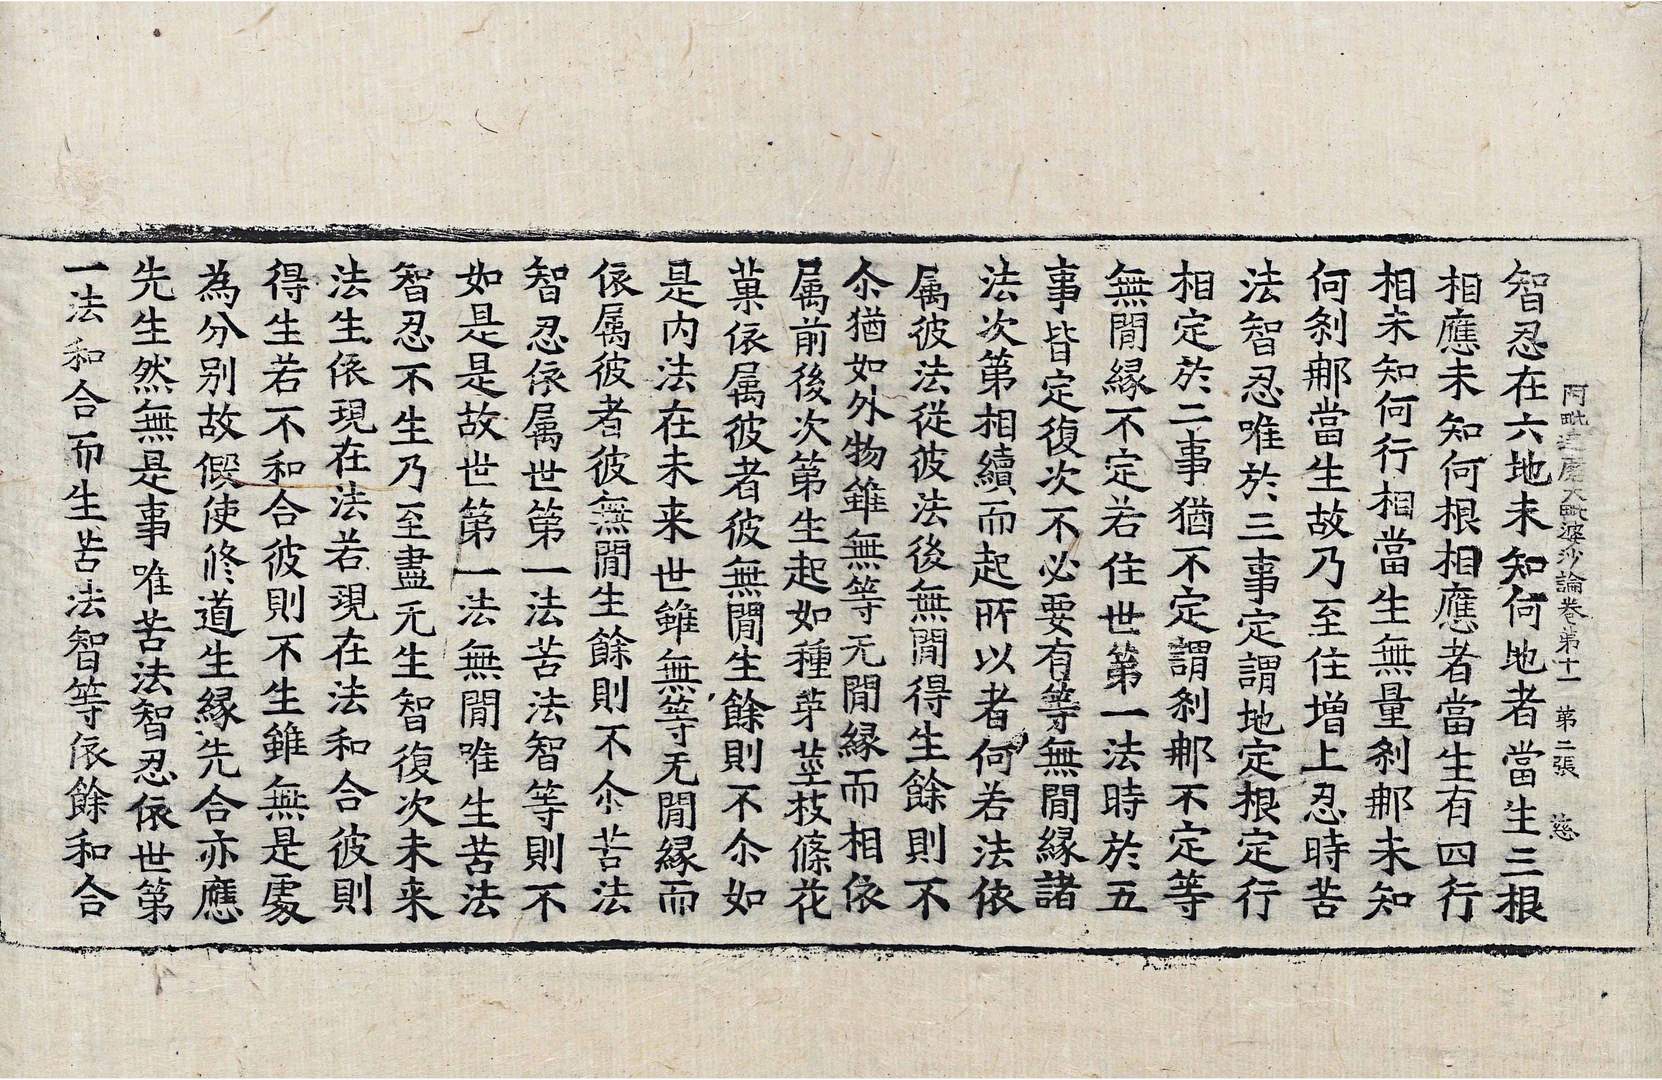 阿毗達磨大毗婆沙論卷第十一 第二張 慈
智忍在六地未知何地者當生三根
相應未知何根相應者當生有四行
相未知何行相當生無量剎那未知
何剎那當生故乃至住增上忍時苦
法智忍唯於三事定謂地定根定行
相定於二事猶不定謂剎那不定等
無閒緣不定若住世第一法時於五
事皆定復次不必要有等無閒緣諸
法次第相續而起所以者何若法依
属彼法從彼法後無閒得生餘則不
尒猶如外物雖無等无閒緣而相依
属前後次第生起如種芽莖枝條花
菓依属彼者彼無閒生餘則不尒如
是內法在未来世雖無等无閒緣而
依属彼者彼無閒生餘則不尒苦法
智忍依属世第一法苦法智等則不
如是是故世第一法無閒唯生苦法
智忍不生乃至盡无生智復次未来
法生依現在法若現在法和合彼則
得生若不和合彼則不生雖無是處
為分別故假使修道生緣先合亦應
先生然無是事唯苦法智忍依世第
一法和合而生苦法智等依餘和合